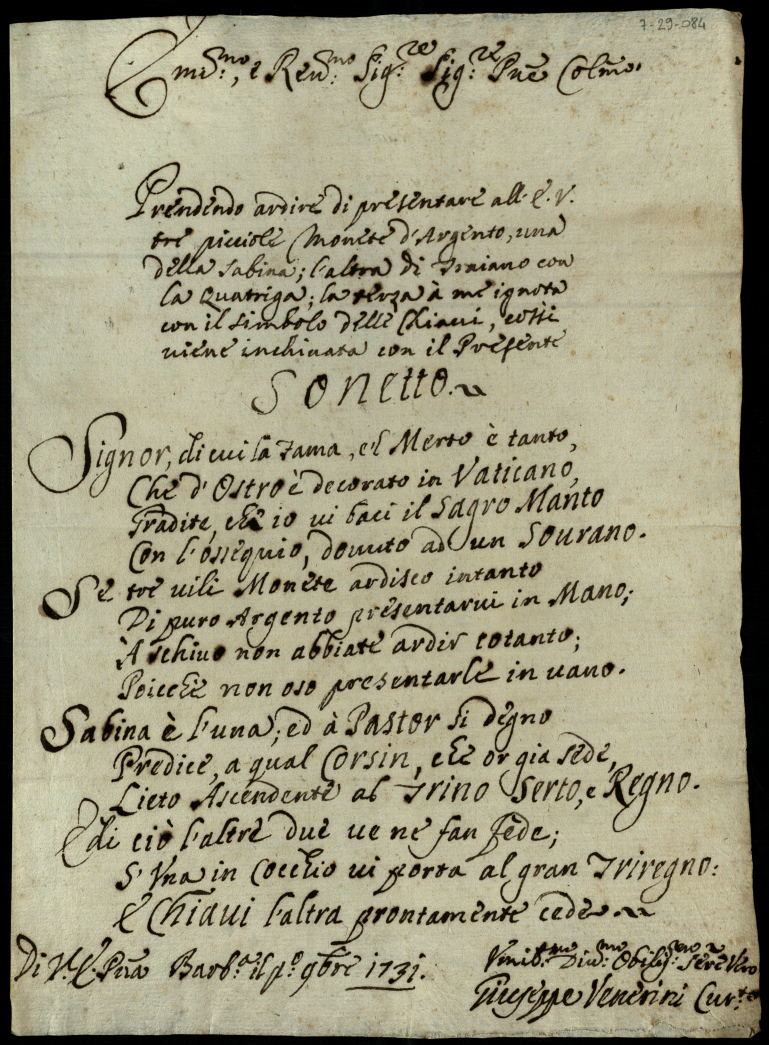 7-29-084
Emi.mo, e Reu.mo Sig.re Sig.re Pne Colmo.
Prendendo ardire di presentare all. E. V.
tre picciole Monete d'Argento, una
della Sabina; l'altra di Traiano con
la Quatriga; la terza à me ignota
con il simbolo delle Chiaui, cossi
viene inchinata con il Presente
Sonetto.
Signor, di cui la Fama, e'l Merto è tanto,
Che d'Ostro è decorato in Vaticano,
Gradite, che io ui baci il Sagro Manto
Con l'ossequio, douuto ad un Sourano.
Se tre uili Monete ardisco intanto
Di puro Argento presentarui in Mano;
A schiuo non abbiate ardir cotanto;
Poicche non oso presentarle in uano.
Sabina è l'una; ed à Pastor si degno
Predice, a qual Corsin, che or gia sede,
Lieto Ascendente al Trino Serto, e Regno.
E di ciò l'altre due ue ne fan fede;
S'Una in Cocchio ui porta al gran Triregno:
E Chiaui l'altra prontamente cede.
Di V. E. Pna Barb. il p.o 9bre 1731.
Vmil.mo Diu.mo Oblig.mo Sere Vero
Giuseppe Venerini Cur.to